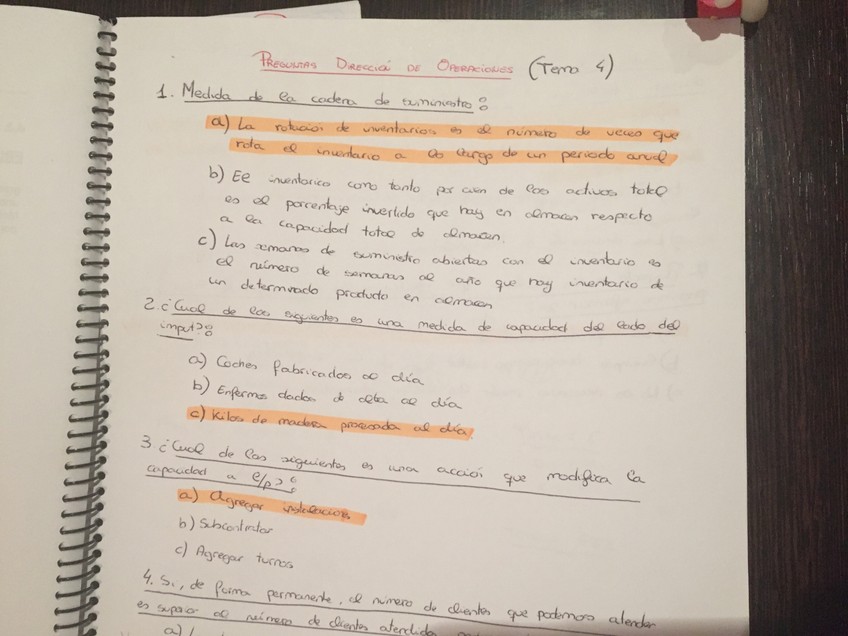 PREGUNTAS DIRECCIÓN DE OPERACIONES (Tema 4)
1. Medida de la cadena de suministro:
a) La rotación de inventarios es el número de veces que
rota el inventario a lo largo de un periodo anual
b) El inventario como tanto por cien de los activos total
es el porcentaje invertido que hay en almacen respecto
a la capacidad total de almacen.
c) Las semanas de suministro abiertas con el inventario es
el número de semanas al año que hay inventario de
un determinado producto en almacen
2. ¿Cual de las siguientes es una medida de capacidad del lado del
input?:
a) Coches fabricados al día
b) Enfermos dados de alta al día
c) Kilos de madera procesada al día.
3 ¿Cual de las siguientes es una acción que modifica la
capacidad a l/p?:
a) Agregar instalaciones.
b) Subcontratar
c) Agregar turnos
4. Si, de forma permanente, el número de clientes que podemos atender
es superior al número de clientes atendidos
a)